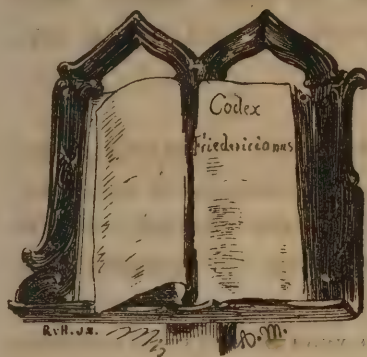 Codex
Friedericianus
R.v.H. JX.
A.M.